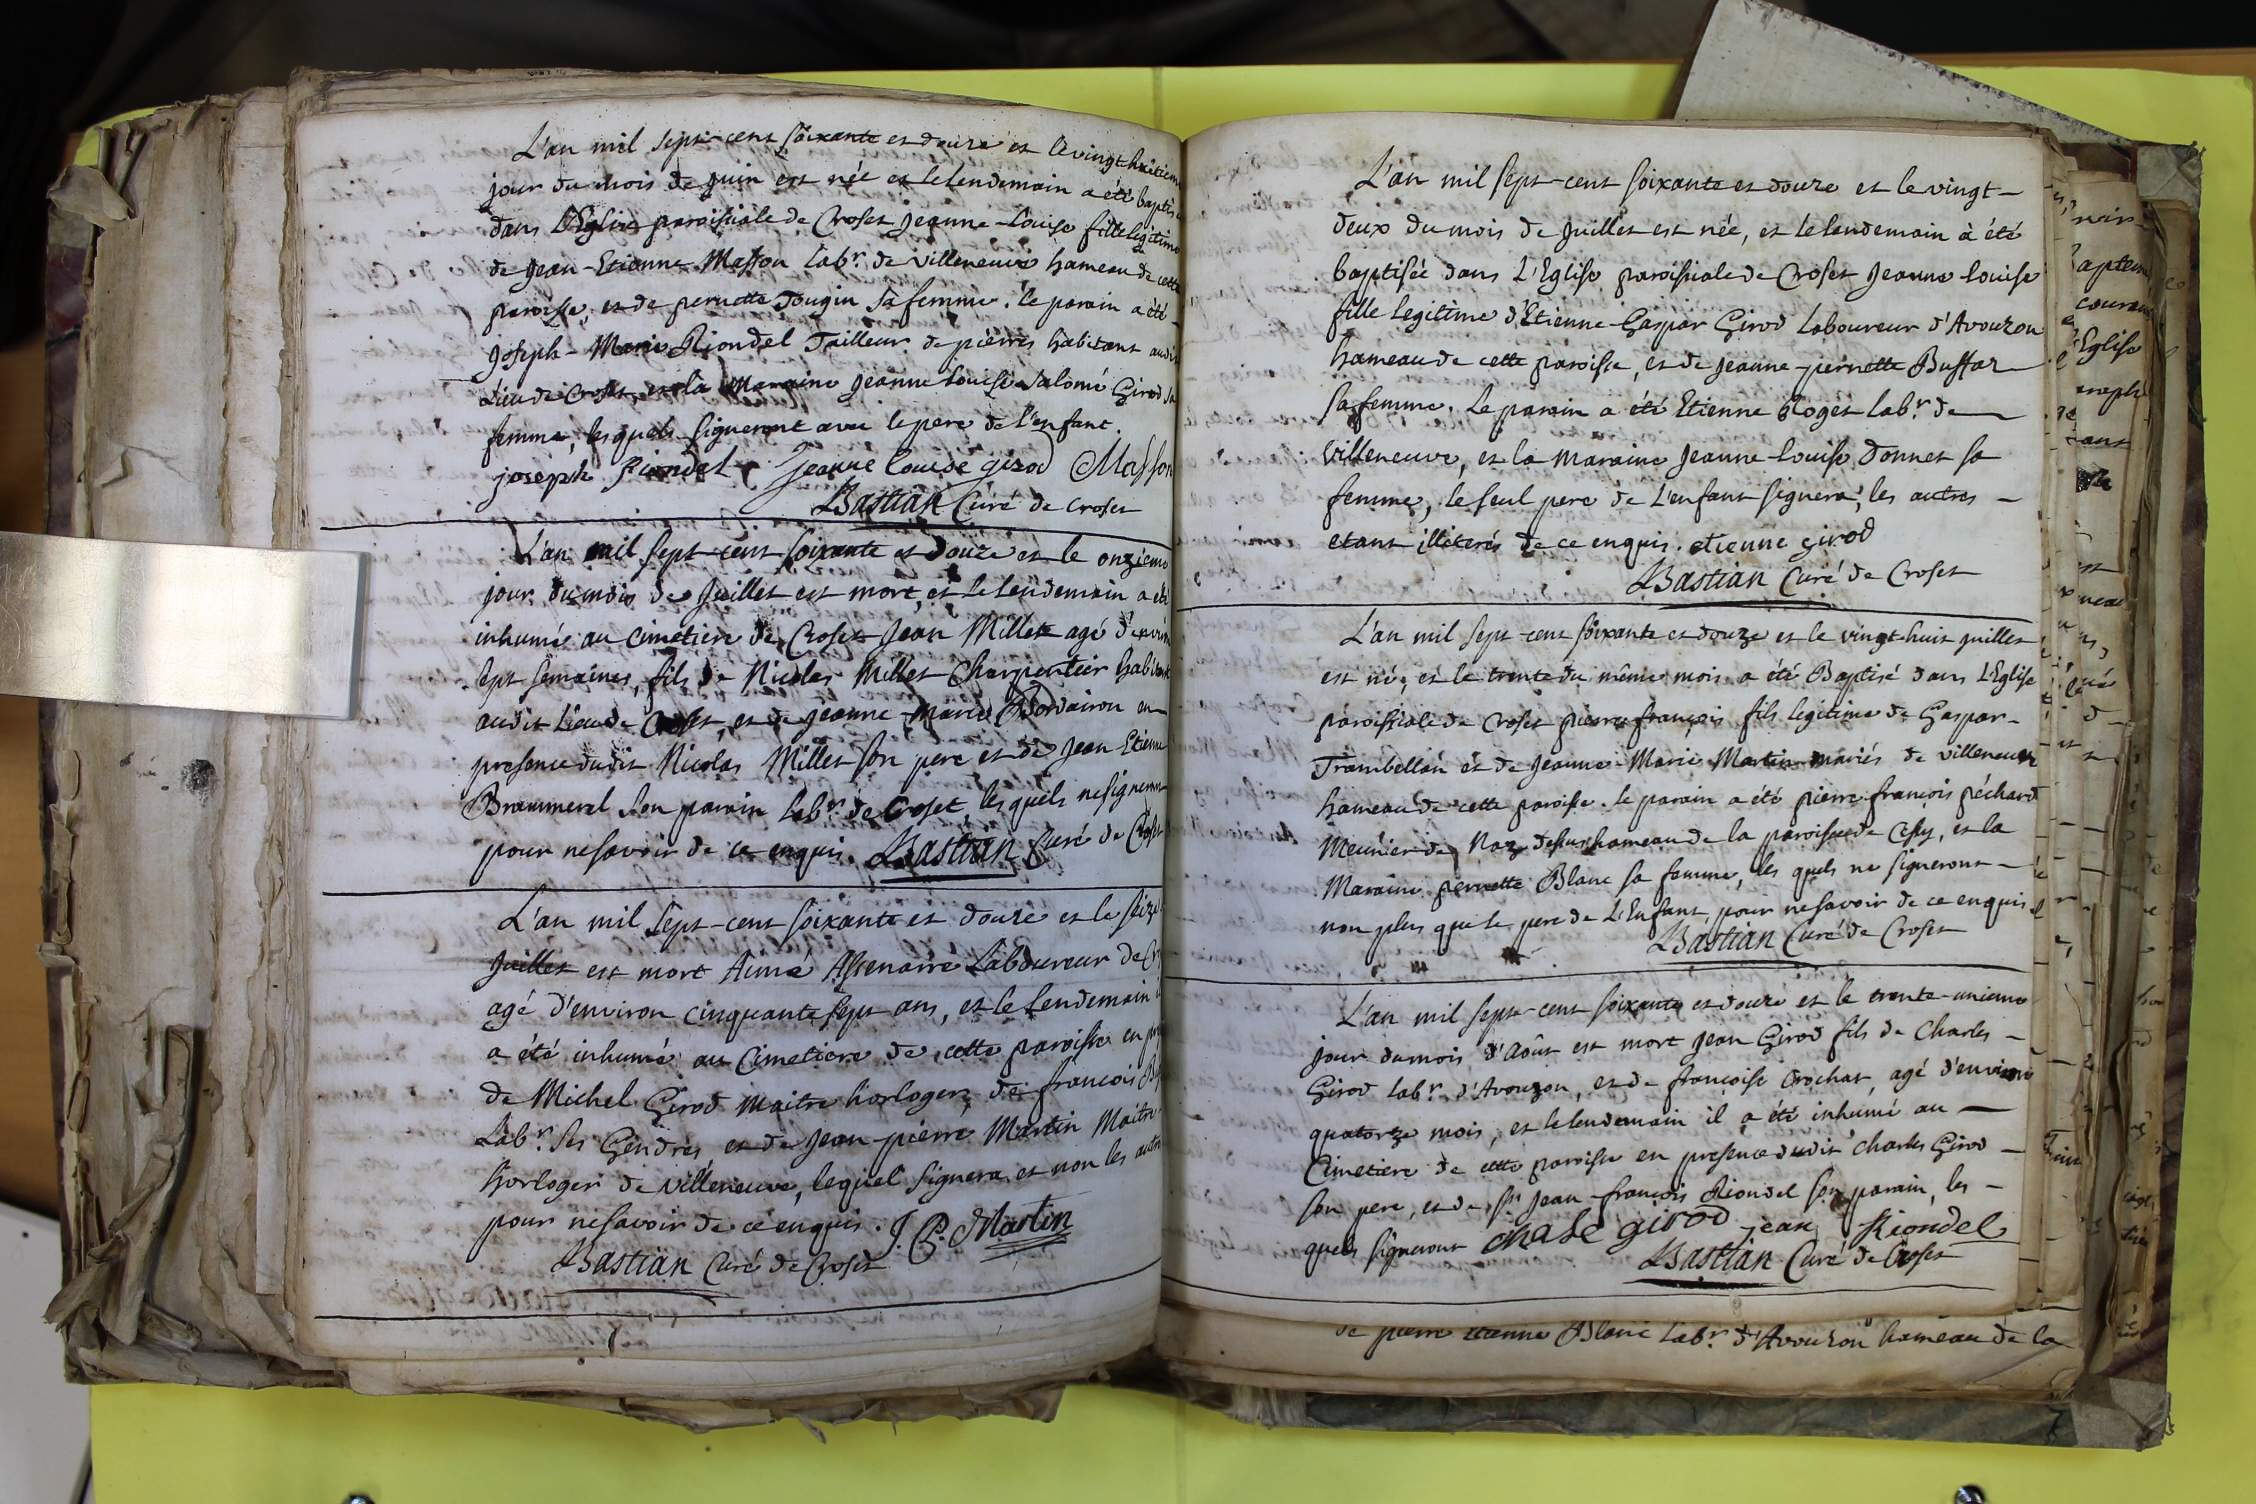 L'an mil sept-cent soixante et douze et le vingt huitieme
jour du mois de juin est née et le lendemain a été baptisé
dans L'Eglise paroissiale de Croset Jeanne-Louise fille legitime
de Jean-Etienne Masson Labr. de Villeneuve hameau de cette
paroisse, et de pernette Dougin sa femme. le parain a été
Joseph-Marie Riondel Tailleur de piérres habitant audit
Lieu de Croset, et la Maraine Jeanne Louise Salomé Girod sa
femme, lesquels signeront avec le pere de l'enfant.
joseph Riondel Jeanne Louise girod Masson
Bastian Curé de Croset
L'an mil sept-cent soixante et douze et le onzieme
jour du mois de Juillet est mort, et le lendemain a été
inhumé au Cimetiere de Croset Jean Millet agé d'environ
sept semaines, fils de Nicolas Millet Charpentier habitant
audit Lieu de Croset, et de Jeanne Marie en
presence dudit Nicolas Millet son pere et de Jean Etienne
son parain Labr. de Croset, les quels ne signeront
pour ne savoir de ce enquis. Bastian Curé de Croset
L'an mil sept-cent soixante et douze et le seize
Juillet est mort Aimé Laboureur de
agé d'environ cinquante sept ans, et le lendemain
a été inhumé au Cimetiere de cette paroisse en
de Michel Girod Maitre horloger, de francois
Labr. ses Gendres, et de Jean-piérre Martin Maitre
horloger de Villeneuve, lequel signera, et non les autres
pour ne savoir de ce enquis. J. P. Martin
Bastian Curé de Croset
L'an mil sept-cent soixante et douze et le vingt-
deux du mois de Juillet est née, et le lendemain à été
baptisée dans L'Eglise paroissiale de Croset Jeanne Louise
fille legitime d'Etienne-Gaspar Girod Laboureur d'Avouzon
hameau de cette paroisse, et de Jeanne-pernette Buffaz
sa femme. Le parain a été Etienne Roget Labr. de
Villeneuve, et la Maraine Jeanne-Louise Donnet sa
femme, le seul pere de L'enfant signera, les autres -
etant illiterés de ce enquis. etienne girod
Bastian Curé de Croset
L'an mil sept-cent soixante et douze et le vingt-huit juillet
est né, et le trente du même mois a été Baptisé dans L'Eglise
paroissiale de Croset pierre françois fils legitime de Gaspar-
Trambellan et de Jeanne-Marie Martin mariés de Villeneuve
hameau de cette paroisse. le parain a été pierre-françois péchard
Meunier de Naz dessus hameau de la paroisse de Cessy, et la
Maraine pernette Blanc sa femme, les quels ne signeront -
non plus que le pere de L'Enfant, pour ne savoir de ce enquis
Bastian Curé de Croset
L'an mil sept-cent soixante et douze et le trente-unieme
jour du mois d'Août est mort Jean Girod fils de Charles -
Girod Labr. d'Avouzon, et de françoise Crochat, agé d'environ
quatorze mois, et le lendemain il a été inhumé au
Cimetiere de cette paroisse en presence dudit Charles Girod -
son pere, et de Sr. Jean-françois Riondel son parain, les -
quels signeront chale girod jean Riondel
Bastian Curé de Croset
de pierre Etienne Blanc Labr. d'Avouzon hameau de la